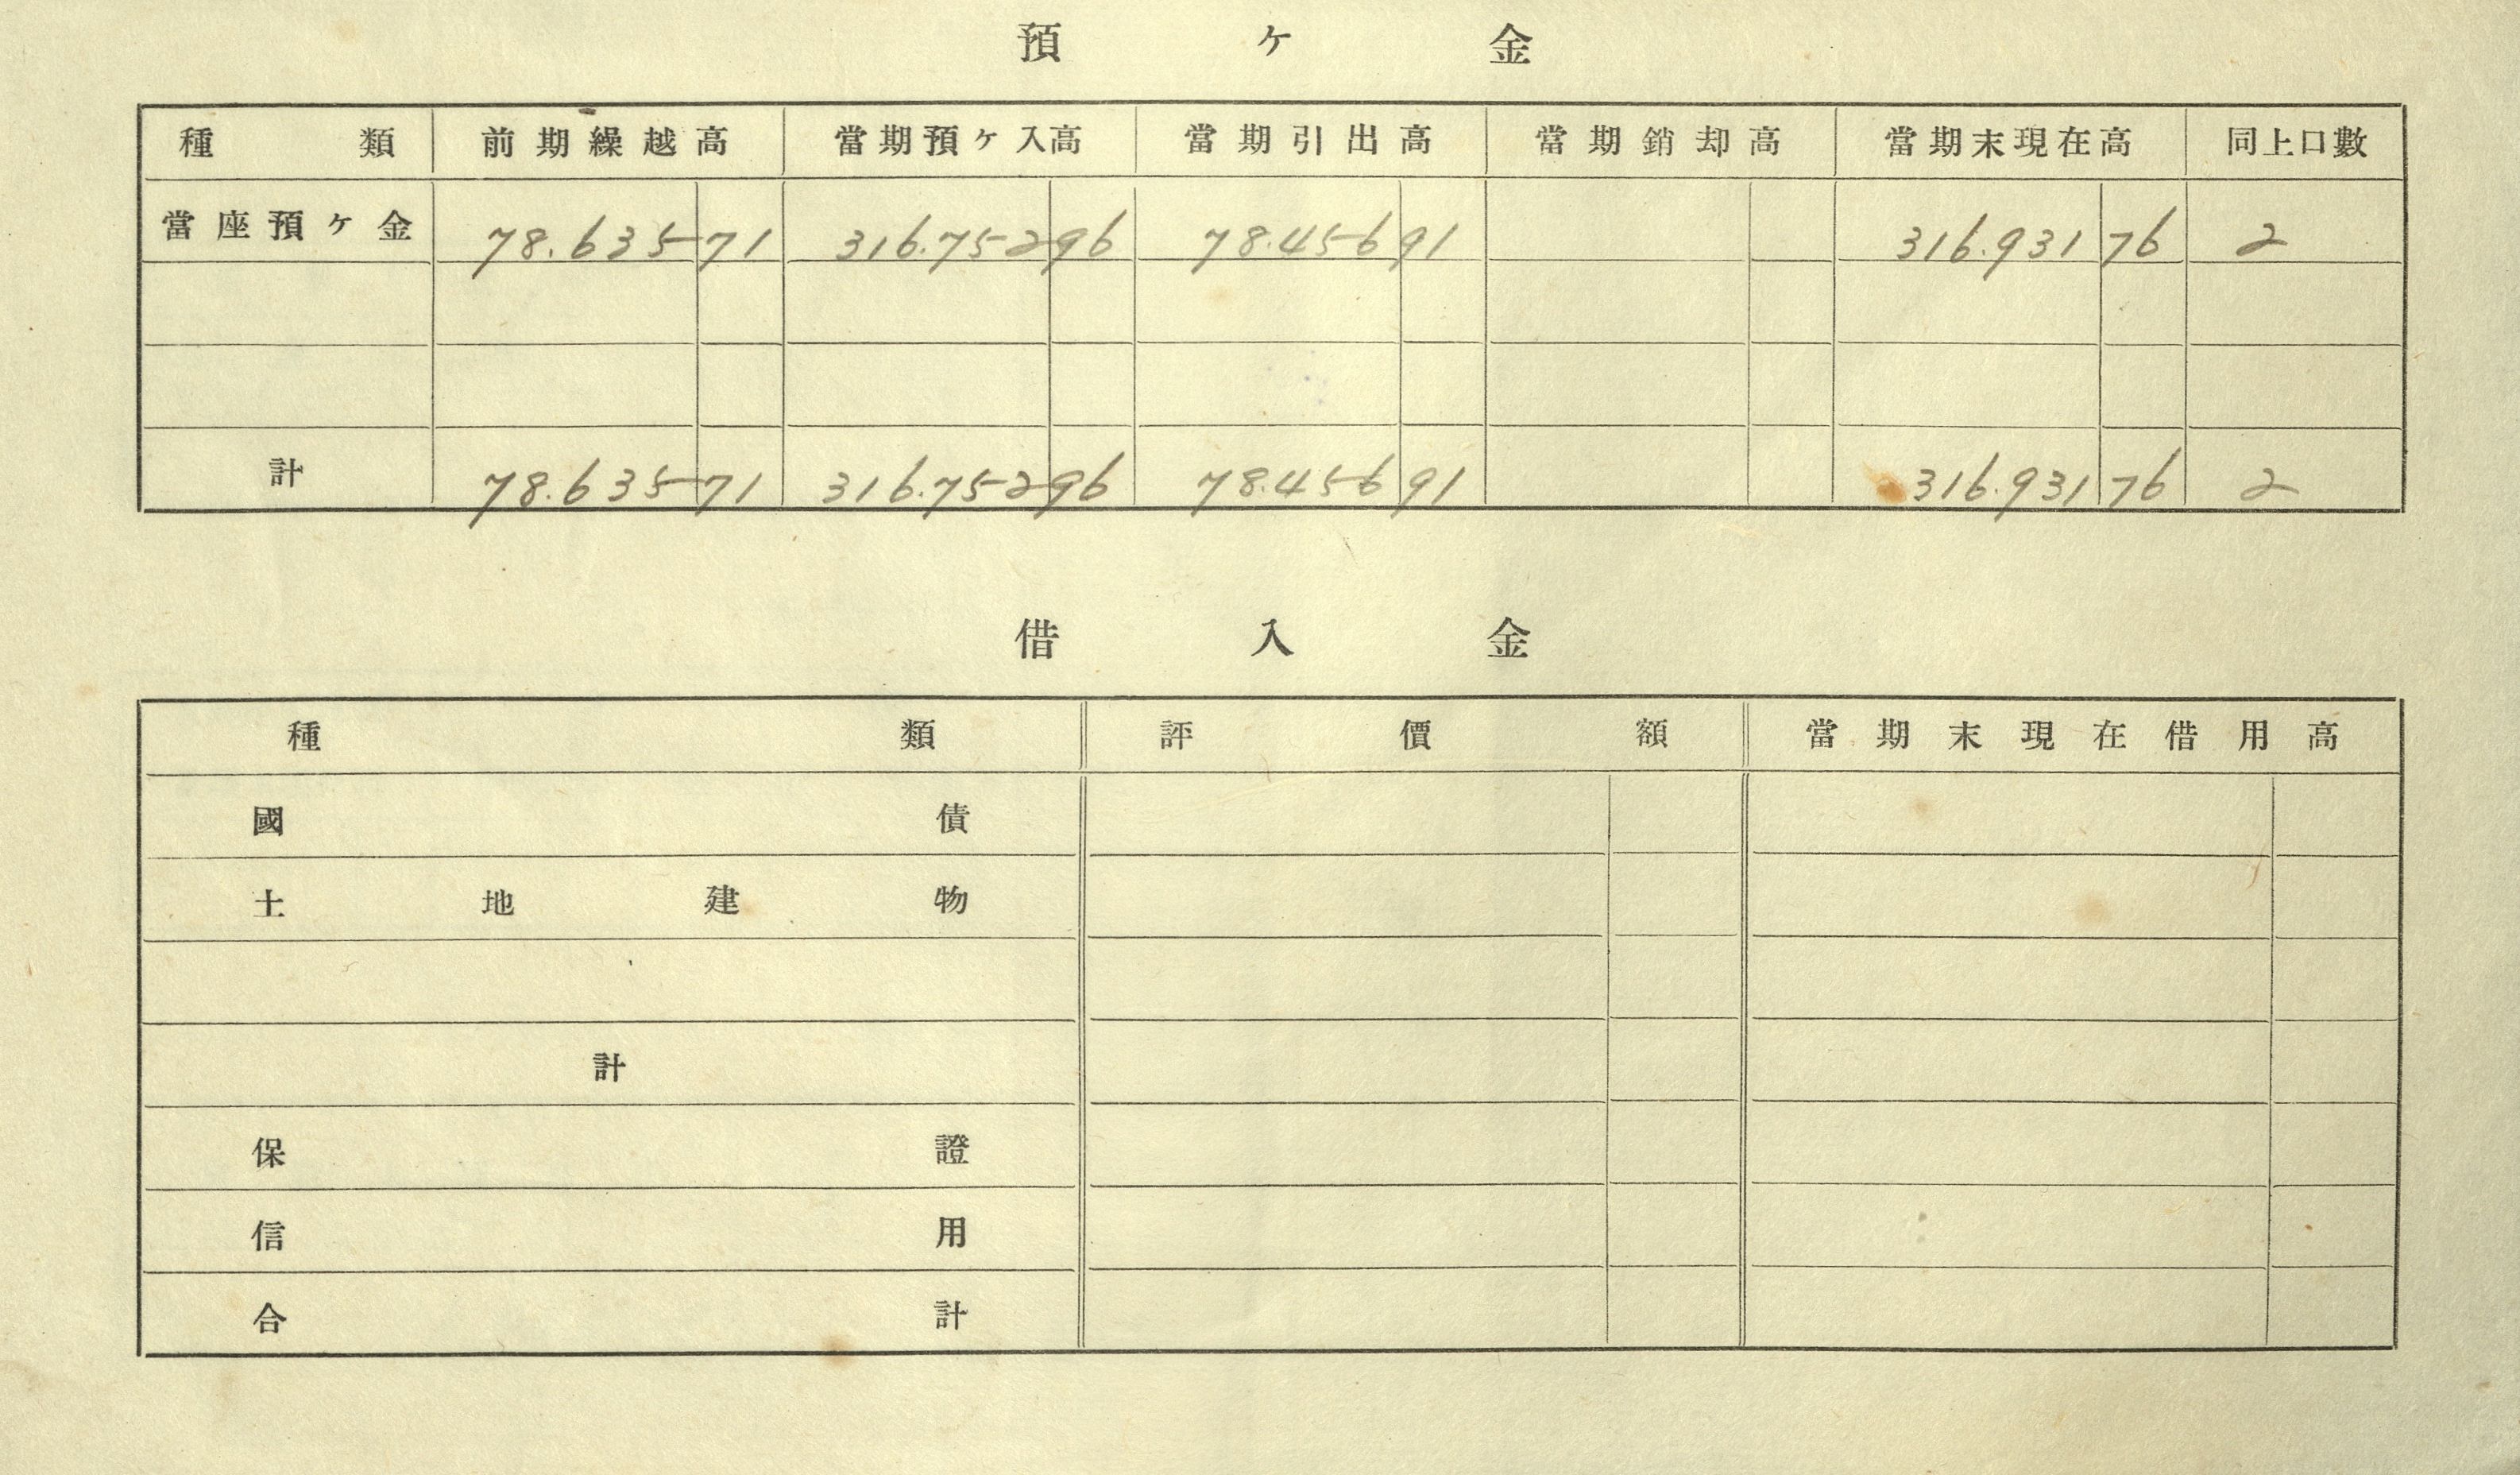 預ケ金
種類 前期繰越高 當期預ケ入高 當期引出高 當期銷却高 當期末現在高 同上口數
當座預ケ金 78.635 71 316.752 96 78.456 91 316.931 76 2
計 78.635 71 316.752 96 78.456 91 316.931 76 2
借入金
種類 評價額 當期末現在借用高
國債
土地建物
計
保證
信用
合計